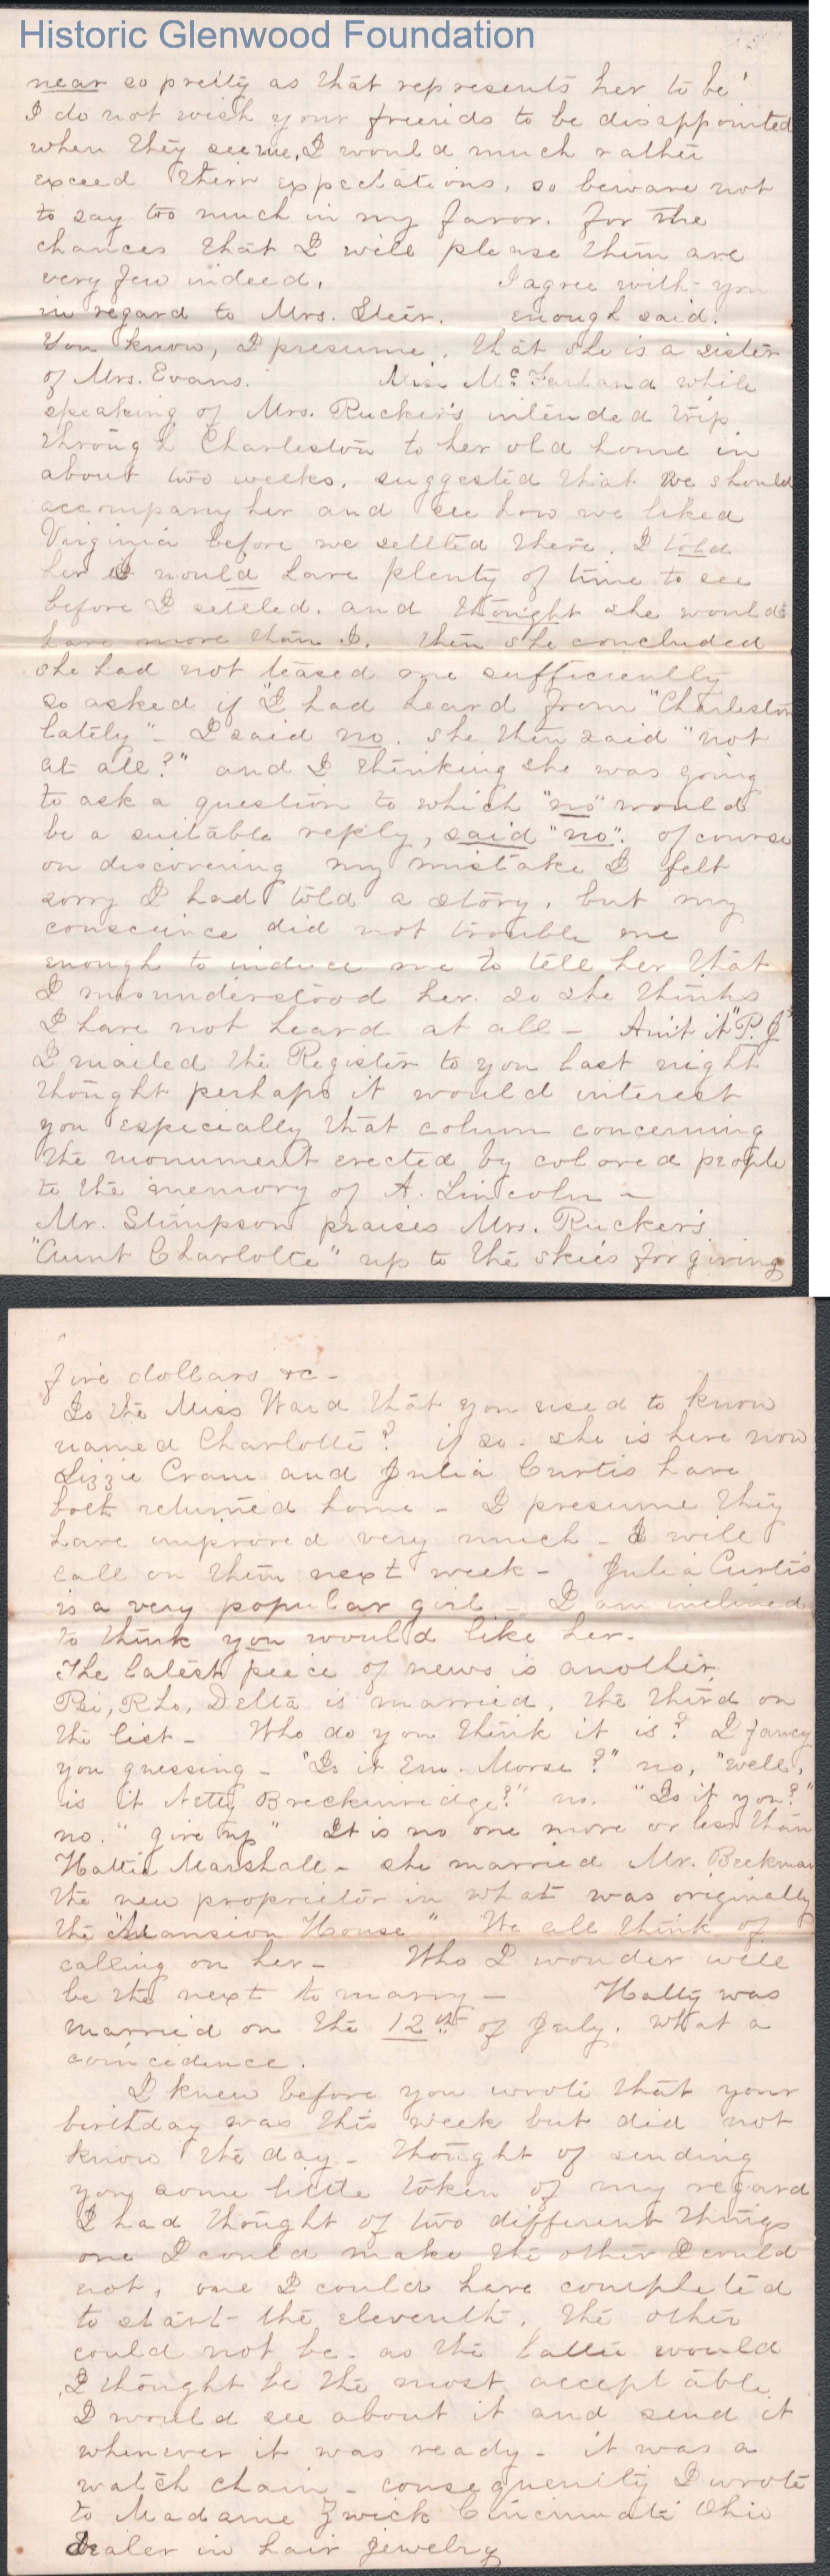 Historic Glenwood Foundation
near so pretty as that represents her to be"
I do not wish your friends to be disappointed
when they see me, I would much rather
exceed their expectations, so beware not
to say too much in my favor. for the
chances that I will please them are
very few indeed. I agree with you
in regard to Mrs. Steer. enough said.
You know, I presume, that she is a sister
of Mrs. Evans. Miss McFarland while
speaking of Mrs. Rucker's intended trip
through Charleston to her old home in
about two weeks, suggested that we should
accompany her and see how we liked
Virginia before we settled there. I told
her I would have plenty of time to see
before I settled. and thought she would
have more than I. then she concluded
she had not teased me sufficiently
so asked if "I had heard from "Charleston
lately" - I said no. she then said "not
at all?" and I thinking she was going
to ask a question to which "no" would
be a suitable reply, said "no". of course
on discovering my mistake I felt
sorry I had told a story, but my
conscience did not trouble me
enough to induce me to tell her that
I misunderstood her. so she thinks
I have not heard at all - Ain't it "P.J"
I mailed the Register to you last night
thought perhaps it would interest
you especially that column concerning
the monument erected by colored people
to the memory of A. Lincoln -
Mr. Stimpson praises Mrs. Rucker's
"Aunt Charlotte" up to the skies for giving
five dollars &c -
Is the Miss Ward that you used to know
named Charlotte? if so. she is here now
Lizzie Crane and Julia Curtis have
both returned home - I presume they
have improved very much - I will
call on them next week - Julia Curtis
is a very popular girl - I am inclined
to think you would like her.
The latest peice of news is another
Psi, Rho, Delta is married, the third on
the list - Who do you think it is? I fancy
you guessing - "Is it Em. Morse?" no, "well,
is it Netty Breckinridge?" no. "Is it you?"
no. "give up" It is no one more or less than
Hattie Marshall - she married Mr. Beekman
the new proprietor in what was originally
the "Mansion House" We all think of
calling on her - Who I wonder will
be the next to marry - Hatty was
married on the 12th of July. What a
coincidence.
I knew before you wrote that your
birthday was this week but did not
know the day - thought of sending
you some little token of my regard
I had thought of two different things
one I could make the other I could
not, one I could have completed
to start the eleventh, the other
could not be. as the latter would
I thought be the most acceptable
I would see about it and send it
whenever it was ready - it was a
watch chain - consequently I wrote
to Madame Zwick Cincinnati Ohio
dealer in hair jewelry